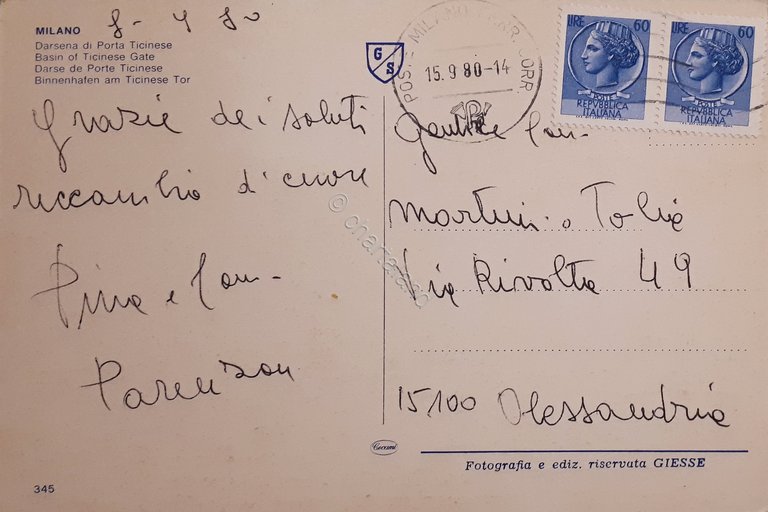 MILANO
Darsena di Porta Ticinese
Basin of Ticinese Gate
Darse de Porte Ticinese
Binnenhafen am Ticinese Tor
8 - 9 80
Grazie dei saluti
riccambio di cuore
Pina e fam-
GS
POSTE MILANO CORR
15.9 80-14
LIRE 60
POSTE
REPVBBLICA
ITALIANA
LIRE 60
POSTE
REPVBBLICA
ITALIANA
Gentile fam-
Via Rivolta 49
15100 Alessandria
Cecami
Fotografia e ediz. riservata GIESSE
345